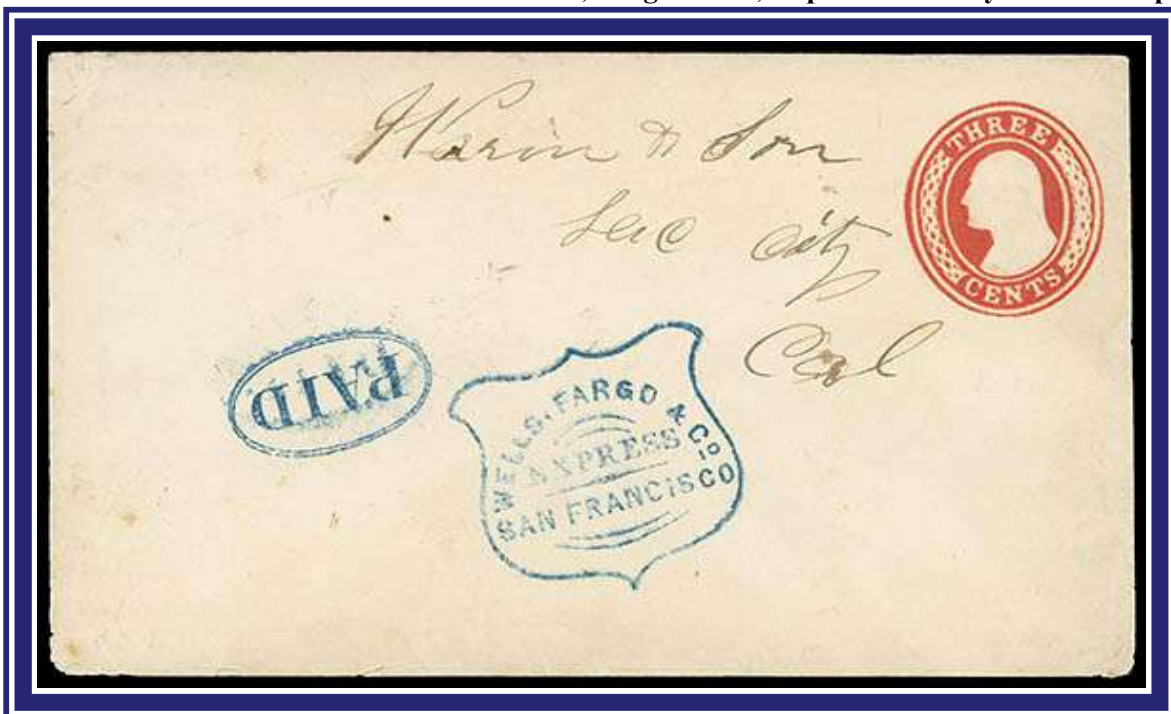 & Son
Sac City
Cal
THREE
CENTS
PAID
WELLS, FARGO & Co
EXPRESS
SAN FRANCISCO